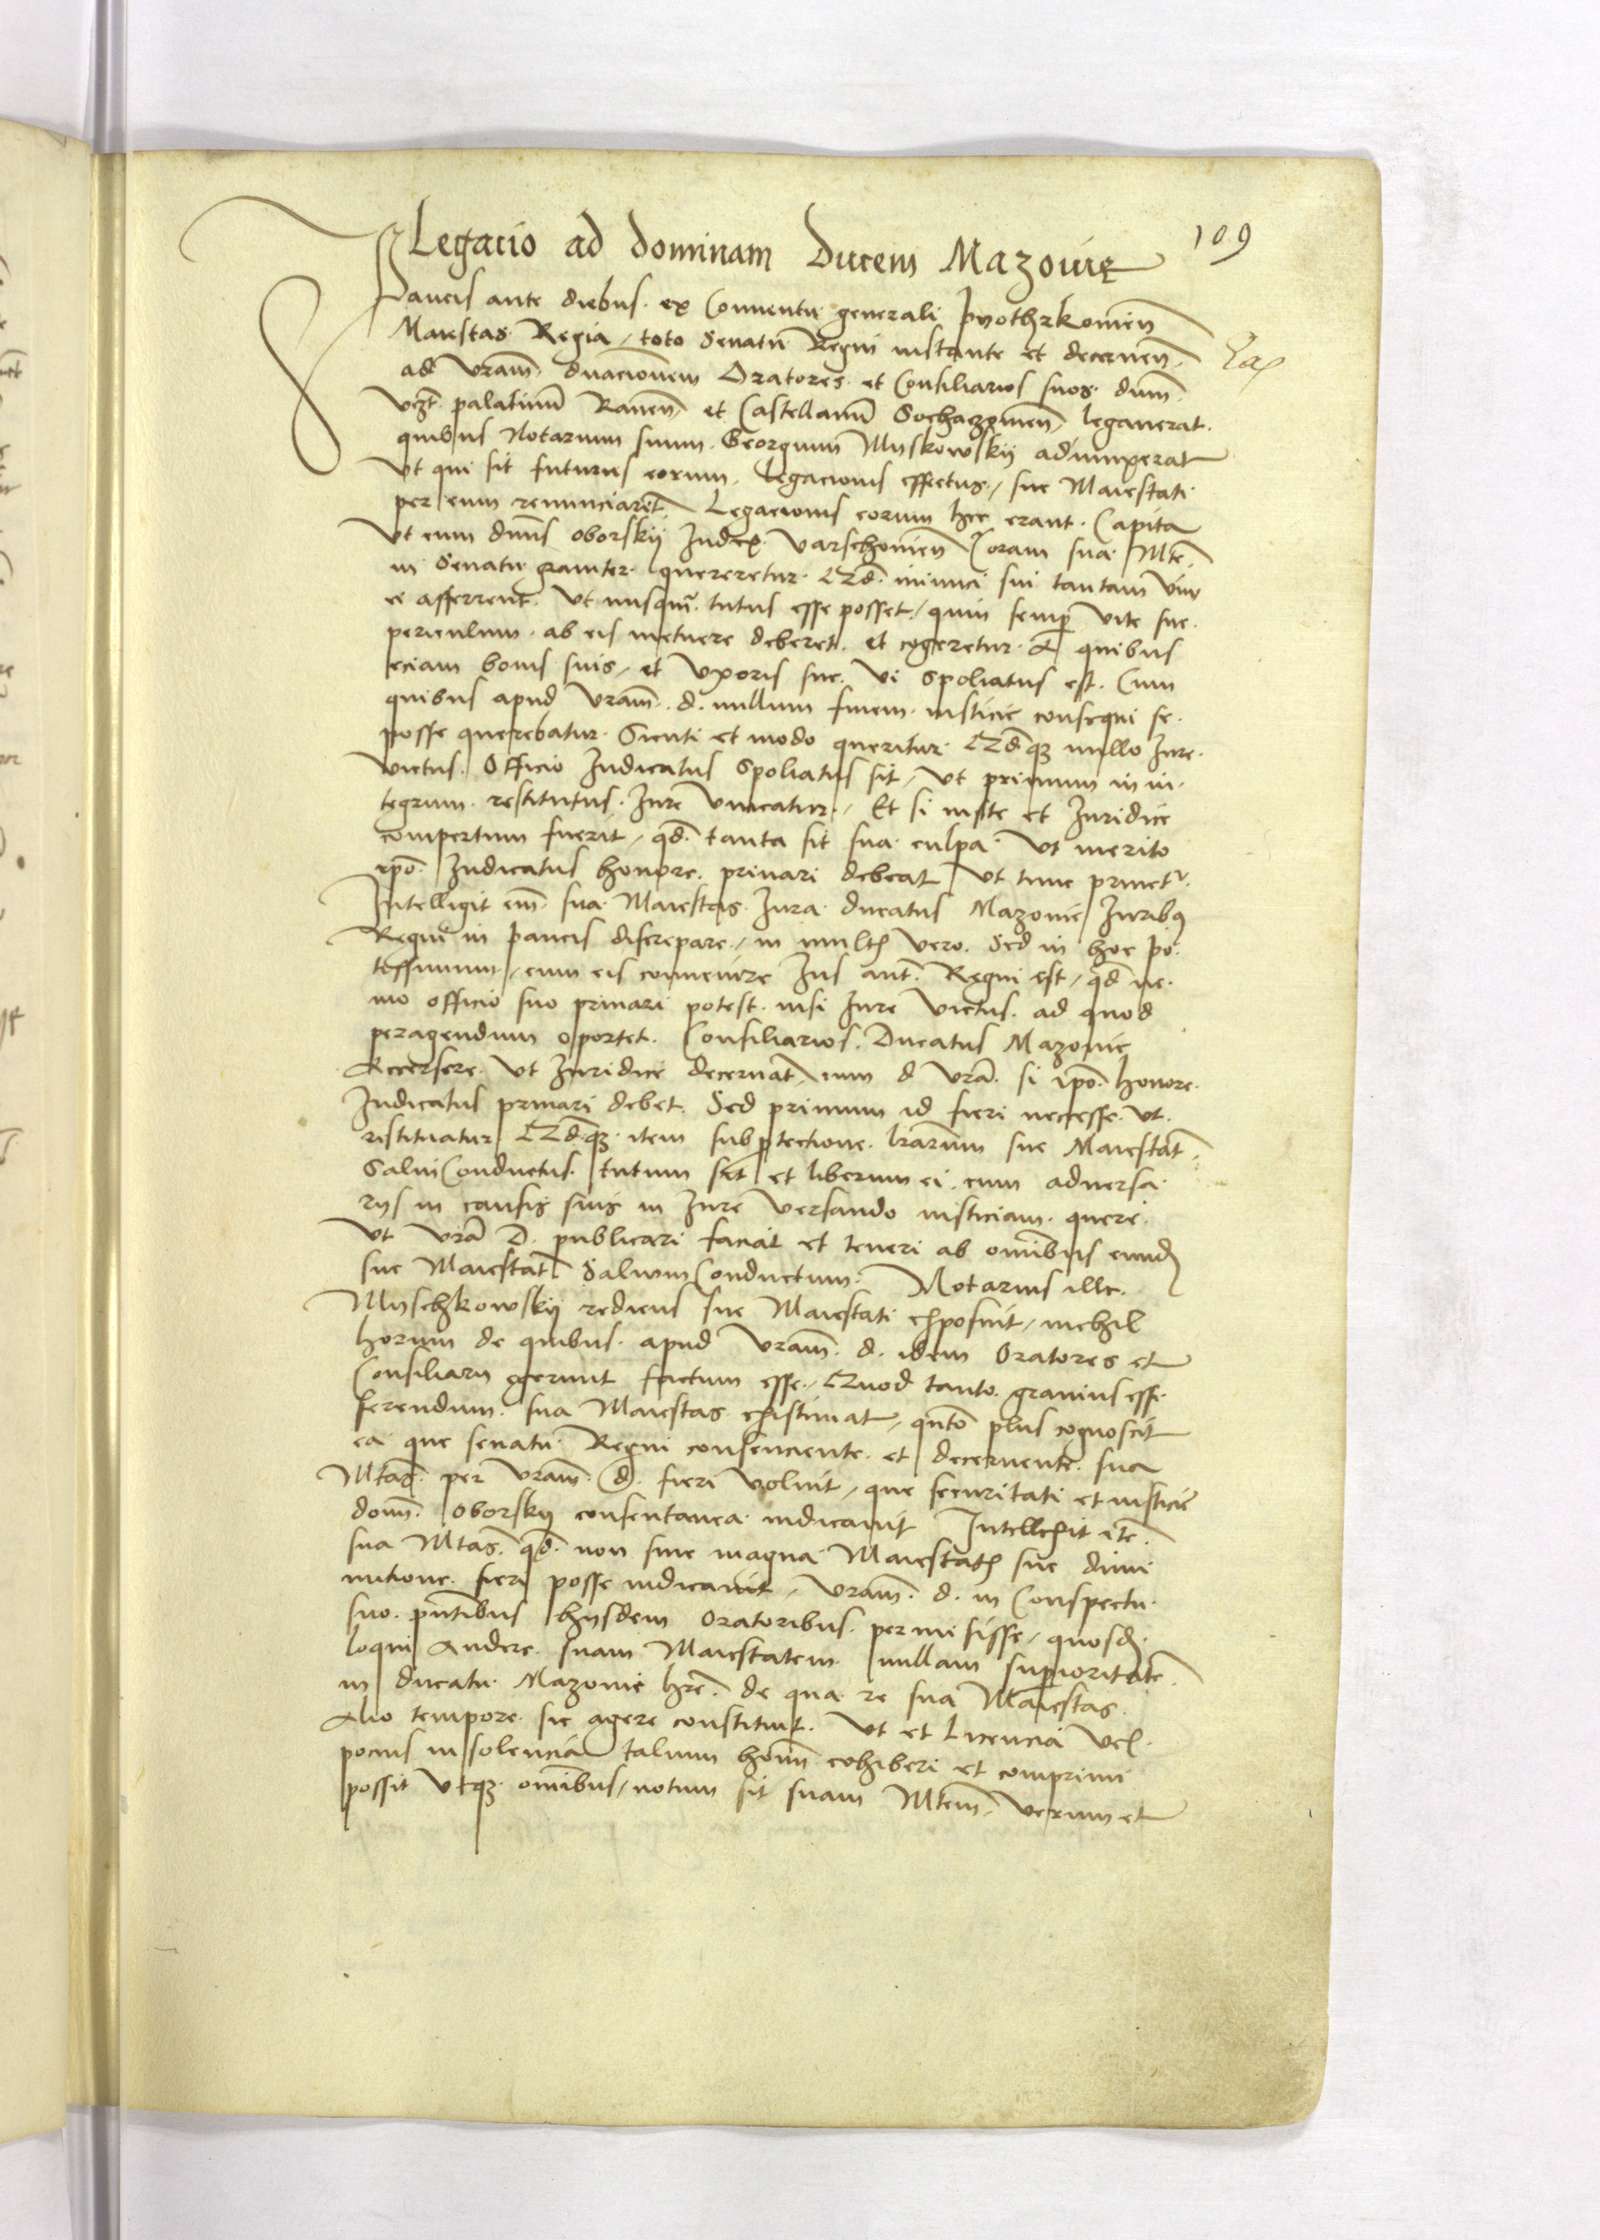 109
Legacio ad dominam Ducem Mazovię
Paucis ante diebus ex Conventu generali Pyothrkovien̄
Maiestas Regia, toto Senatu Regni instante et decernen̄
ad Vram̄ dnacionem Oratores et Consiliarios suos dnm̄
Vꝫt palatinū Raven̄ et Castellanū Sochaczovien̄ legaverat
quibus Notarium suum Georgium Myskowskij adiunxerat
Ut qui sit futurus eorum Legacionis effectus, sue Maiestati
per eum renunciaret̄ Legacionis eorum hec erant Capita
Ut cum dnus̄ Oborskij Iudex Varschovien̄ Coram sua Mte
in Senatu graviter quereretur Qd̄ inimici sui tantam vim
ei afferrent Ut nusqm̄ tutus esse posset, quin semp̄ vite sue
periculum ab eis metuere deberet et cogeretur A quibus
eciam bonis suis, et Uxoris sue vi spoliatus est Cum
quibus apud Vram̄ d. nullum finem iusticie consequi se
posse querebatur Sicuti et modo queritur Qd̄qꝫ nullo Iure
victus Officio Iudicatus spoliatus sit, Ut primum in in
tegrum restitutus Iure vincatur, Et si iuste et Iuridice
compertum fuerit, qd̄ tanta sit sua culpa Ut merito
ipō Iudicatus honore privari debeat Ut tunc privet̄
Intelligit em̄ sua Maiestas Iura ducatus Mazovie Iuribꝰ
Regni in paucis discrepare, in multis vero Sed in hoc po
tissimum, cum eis convenire Ius aut̄ Regni est, qd̄ ne
mo officio suo privari potest nisi Iure victus ad quod
peragendum oportet Consiliarios Ducatus Mazovie
Accersere Ut Iuridice decernat̄ cum d vra si ipō honore
Iudicatus privari debet Sed primum id fieri necesse Ut
restituatur Qd̄qꝫ item sub ptectione lrarum̄ sue Maiestat̄
Salvi Conductus tutum sit et liberum ei cum adversa
rijs in causis suis in Iure versando iusticiam querere
Ut Vrā D. publicari faciat et teneri ab omībus eundē
sue Maiestatis Salvum Conductum Notarius ille
Myschkowskij rediens sue Maiestati exposuit, nichil
horum de quibus apud Vram̄ d. idem Oratores et
Consiliarij egerunt factum esse, Quod tanto gravius esse
ferendum sua Maiestas existimat, qn̄to plus cognoscit
ea que senatu Regni consenciente et decernente sua
Mtas̄ per Vram̄ d. fieri voluit, que securitati et iusticie
domī Oborskij consentanea iudicavit Intellexit ite
sua Mtas̄ qd̄ non sine magna Maiestatis sue dimi
nutione fieri posse iudicavit, Vram̄ d. in Conspectu
suo pn̄tibus hijsdem Oratoribus permisisse, quosdā
loqui Audere suam Maiestatem nullam supioritatē
in ducatu Mazovie hrē de qua re sua Maiestas
Alio tempore sic agere constituit Ut et Licencia vel
pocius insolencia talium homī cohiberi et comprimi
possit Utqꝫ omībus notum sit suam Mtem̄ verum et